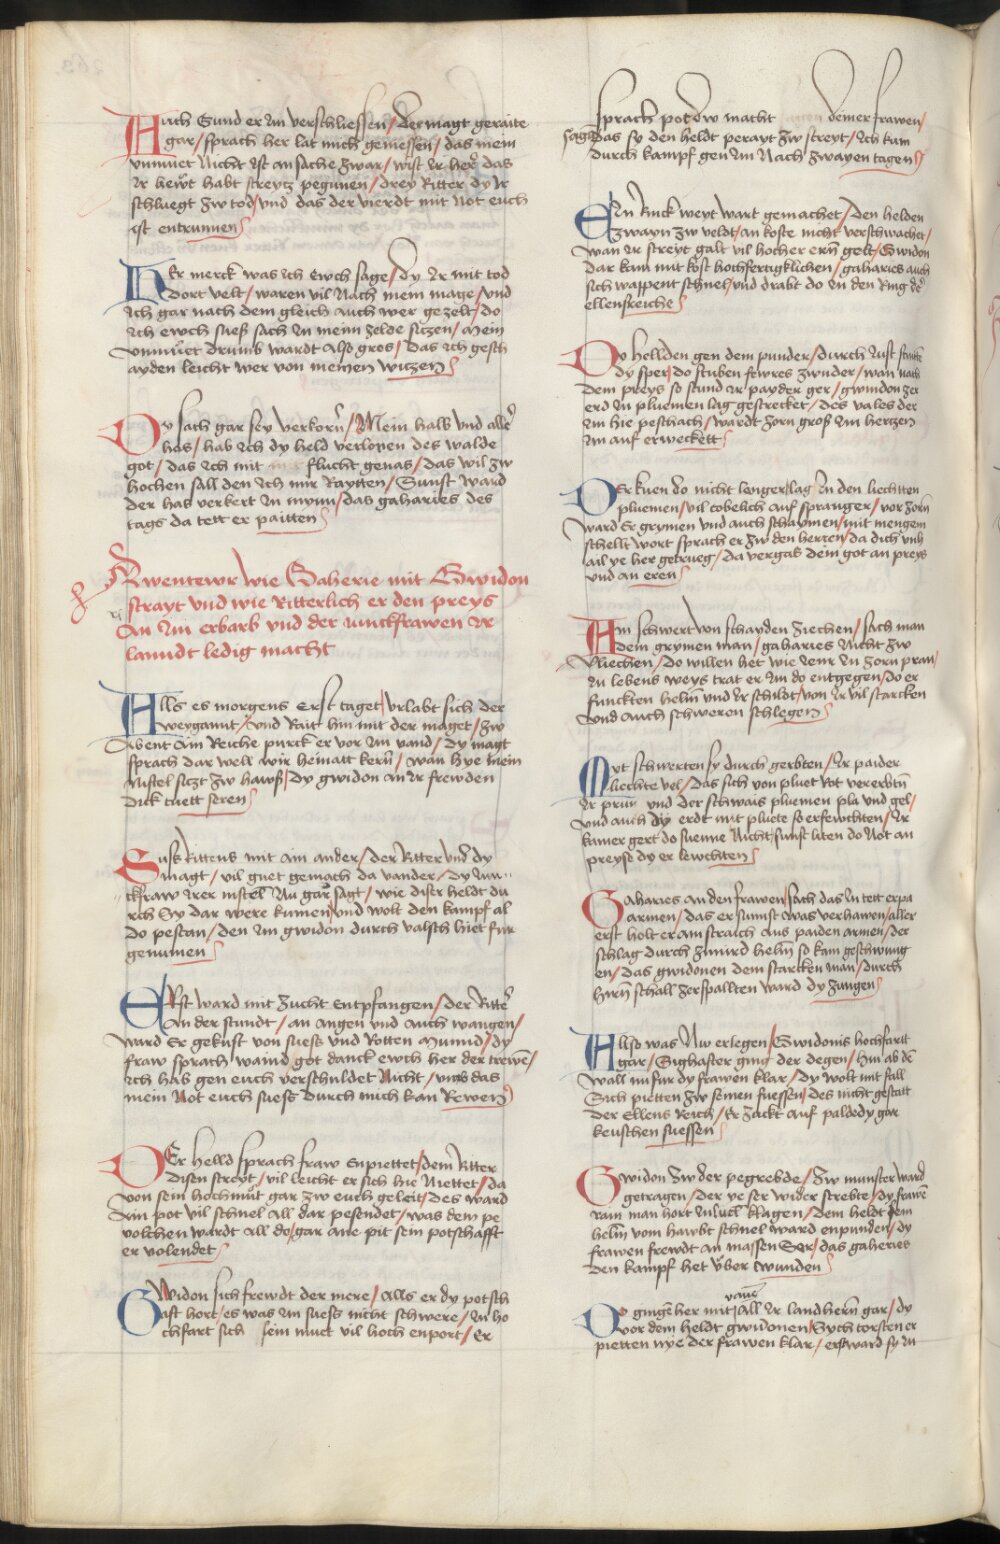 Auch Gund er im verschliessen / der magt geraite
gar / sprach her lat mich geniessen / das mein
unmuet nicht ist an sache zwar / wist ir her das
ir hewt habt streytz pegunen / drey Ritter dy ir
schluegt zw tod / und das der vierdt mit not euch
ist entrunnen
Er merck was ich ewch sage / dy ir mit tod
dort velt / waren vil nach mein mage / und
ich gar nach dem gleich auch wer gezelt / do
ich ewch sueß sach in meim zelde sitzen / mein
unmuet drumb wardt also gros / das ich gesch
ayden leicht wer von meinen witzen
Dy sach gar sey verkorn / Mein halb und aller
has / hab ich dy held verloren des walde
got / das ich mit flucht genas / das wil zw
hochen sall den ich mir Raytten / Sunst ward
der has verkert in mynn / das gaharies des
tags da tett er paitten
Awentewr wie Gaherie mit Gwidon
strayt und wie Ritterlich er den preys
an im erbarb und der iunckfrawen ir
lanndt ledig macht
Alls es morgens erst taget / urlabt sich der
weygannt / und Rait hin mit der maget / zw
Abent ain Reiche purck er vor im vand / dy magt
sprach dar well wir heinatt kern / wan hye mein
nistel sitzt zw hawß / dy gwidon an ir frewden
dick tuett seren
Suss Rittens mit ain ander / der Ritter und dy
magt / vil guet gemach da vander / dy iun
ckfraw irer nistel nu gar sagt / wie diser heldt du
rch Sy dar were kumen / und wolt den kampf al
do pestan / den im gwidon durch valsch hiet fur
genumen
Erst ward mit zucht entpfangen / der Ritter
an der stundt / an augen und auch wangen /
ward Er gekust von suess und Rotten mund / dy
fraw sprach waind got danck ewch her der trewe /
ich hab gen euch verschuldet nicht / umb das
mein not euch suess durch mich kan Rewen
Der helld sprach fraw enpiettet / dem Ritter
disen streyt / vil leicht er sich hie niettet / da
von sein hochmuet gar zw euch geleit / des ward
ain pot vil schnel all dar pesendet / was dem pe
volchen wardt all do / gar ane pit sein potschafft
er volendet
Gwidon sich frewdt der mere / alls er dy potsch
aft hort / es was im suess nicht schwere / in ho
chfart sich sein muet vil hoch enport / er
sprach pot dw macht deiner frawen /
sagn das sy den heldt perayt zw streyt / ich kum
durch kampf gen im nach zwayen tagen
Ein Rinck weyt wart gemachet / den helden
zwayn zw veldt / an koste nicht verschwachet /
wan ir streyt galt vil hocher ern gelt / Gwidon
dar kam mit kost hochfertigklichen / gaharies auch
sich wappent schnel / und drabt do in den Ring der
ellensreiche
Dy hellden gen dem punder / durch lust
dy sper / do stuben fewres zwnder / wan nach
dem preys so stund ir payder ger / gwindon zer
erd in pluemen lag gestrecket / des vales der
im hie peschach / wardt zorn groß im hertzen
im auf erweckett
Der kuen do nicht lenger lag / in den liechtten
pluemen / vil tobelich auf spranger / vor zorn
ward er grymen und auch schaymen / mit mengem
schellt wort sprach er zw den herzen / da dich unh
ail ye her getrueg / da vergas dem got an preys
und an eren
Ain schwert von schayden ziechen / sach man
dem grymen man / gaharies nicht zw
vliechen / do willen het wie venr in zorn pran /
in lebens weys trat er im do entgegen / do er
funckten helm und ir schildt / von ir vil starcken
und auch schweren schlegen
Myt schwerten sy durch gerbten / ir paider
liechte vel / das sich von pluet Rot vererbtn
ir prün und der schwais pluemen pla und gel /
und auch dy erdt mit pluete so erfewchten / ir
kainer gert do suenne nicht / sunst liten do not an
preyse dy er lewchten
Gaharies an den frawen / sach das in tett erpa
armen / das er sunst was verhawen / aller
erst holt er ain straich aus paiden armen / der
schlag durch zimird helm so kam geschwung
en / das gwidonen dem starcken man / durch
hirn schall zerspallten ward dy zungen
Allso was nw erlegen / Gwidonis hochfartt
gar / Sighafter ging der degen / hin ab dem
wall nu fur dy frawen klar / dy wolt mit fall
Sich pietten zw seinen fuessen / des nicht gestatt
der Ellens Reich / er zuckt auf paldedy gar
keuschen suessen
Gwidon zw der pegrebde / zw munster ward
getragen / der ye ser wider strebte / dy frawen
vain man hort in luck klagen / dem heldt sein
helm vom hawbt schnel ward enpunden / dy
frawen frewdt an massen Ser / das gaheries
den kampf het über wunden
vaue
Do gingen her mit all ir landhern gar / dy
vor dem heldt gwidonen / Sych torsten er
pietten nye der frawen klar / erst ward sy in